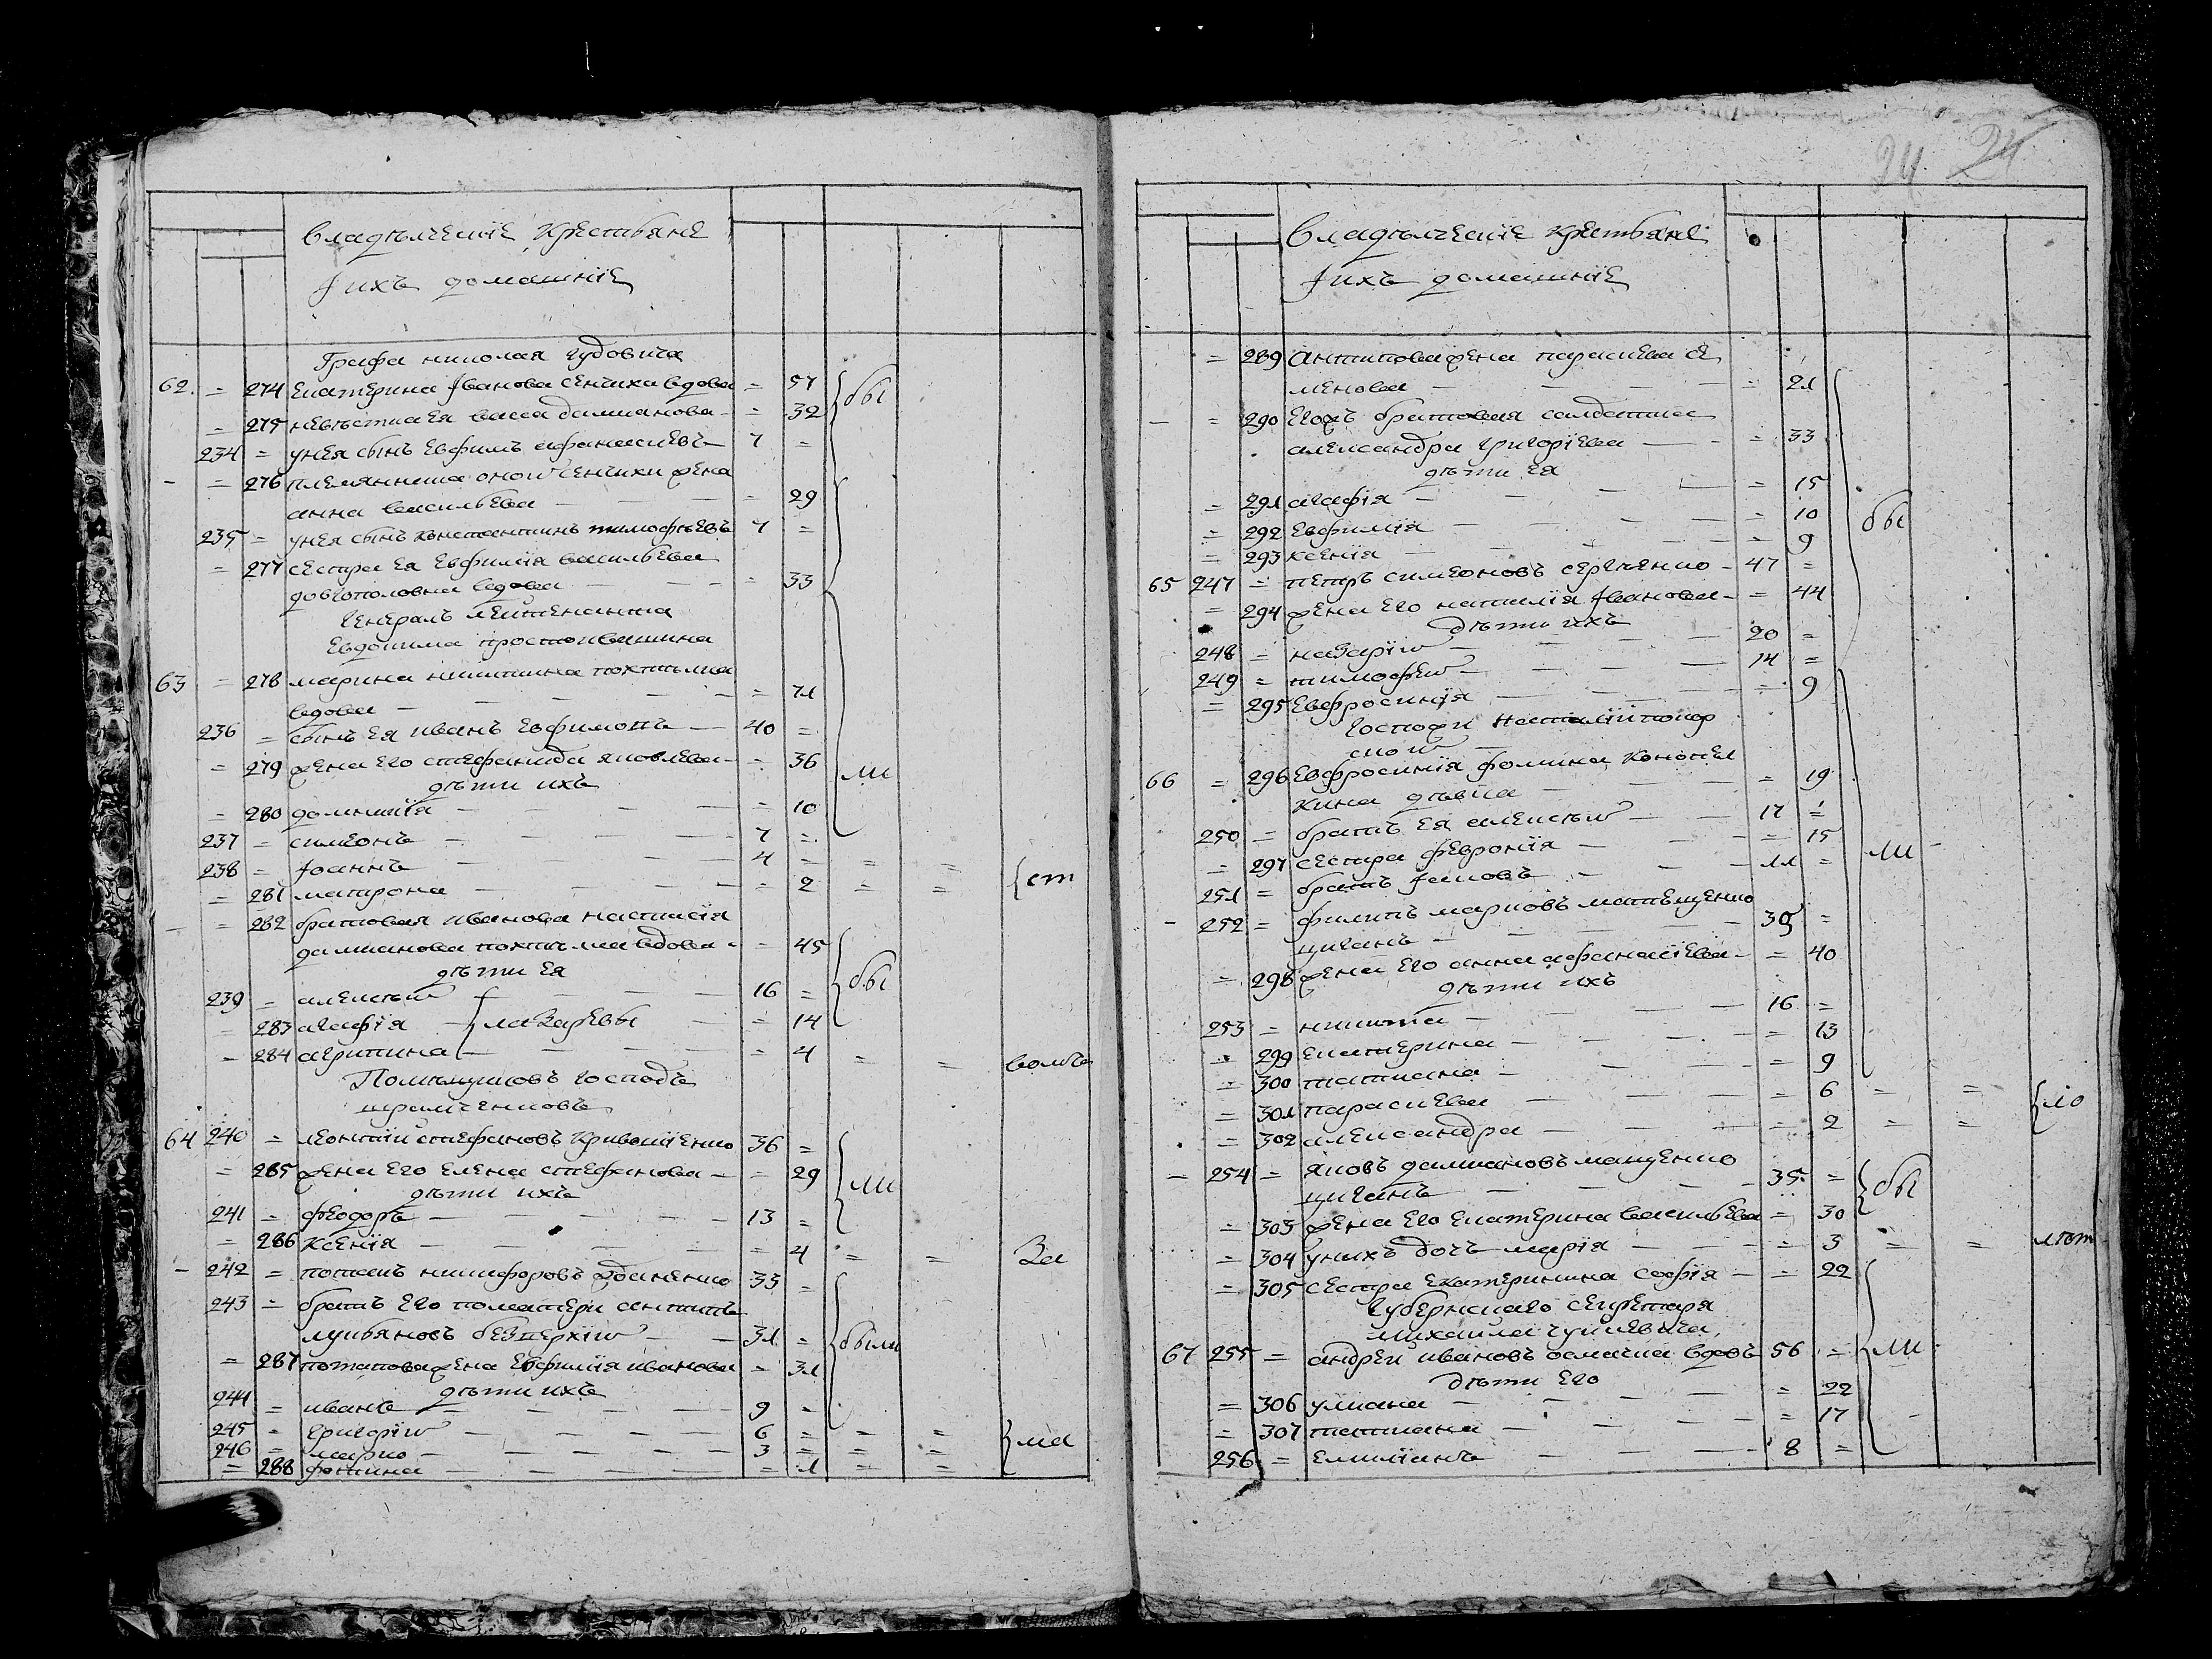 владѣлческіе крестьяне
и ихъ домашніе
Графа николая гудовича
62. = 274 Екатерина Іванова сенчиха вдова = 57 бы
= 275 невѣстка Ея васса даміанова = 32
234 = унЕя сынъ Евфимъ афанасиевъ 7 =
- = 276 племянника оной сенчихи жена
анна василиева - 29
235 = унея сынъ константинъ тимофѣевъ 7 =
= 277 сестра Ея Евфимія василиева
довгополовна вдова = 33
Генералъ лейтенанта
Евдокима простоквашина
63 = 278 марина никитина
вдова = 71
236 = сынъ Ея иванъ Евфимовъ 40 =
= 279 жена Его стефанида яковлева = 36 ли
дѣти ихъ
= 280 домникія = 10
237 = симеонъ 7 =
238 = Іоаннъ 4 = = =
= 281 матрона = 2 = = ст
- = 282 братовая иванова настасія
даміанова вдова = 45
дѣти Ея бы
239 = алексѣй 16 =
= 283 агафія лазаревы = 14
= 284 агрипина = 4 = = вомъ
Помѣщиковъ господъ
64 240 = леонтій стефановъ кривошіенко 36 =
= 285 жена Его Елена стефанова = 29 ли
дѣти ихъ
241 = феодоръ 13 =
= 286 ксенія = 4 = = за
- 242 = потапъ никифоровъ жданенко 33 =
243 = братъ Его поматери антипъ
лукьяновъ 31 = были
= 287 потапова жена Евфимія иванова = 31
дѣти ихъ
244 = иванъ 9 =
245 = григорій 6 = = =
246 = марко 3 = = = ма
= 288 фотина = 1 = =
24 24
владѣлческіе крестьяне
и ихъ домашніе
= 289 антипова жена параскева се
менова = 21
- = 290 Егожъ братовая салдатка
александра григоріева = 33
дѣти Ея
= 291 агафія = 15
= 292 Евфимія = 10 бы
= 293 ксенія = 9
65 247 = петръ симеоновъ сергѣенко 47 =
= 294 жена Его наталія Іванова = 44
дѣти ихъ
248 = назарій 20 =
249 = тимофей 14 =
= 295 Евфросинія = 9
Госпожи наталіи покор
ской
66 = 296 Евфросинія фомина конопел
кина дѣвка = 19
250 = братъ Ея алексѣй 17 =
= 297 сестра февронія = 15 ли
251 = братъ Іаковъ 11 =
- 252 = филипъ марковъ матвѣщенко
циганъ 35 =
= 298 жена Его анна афанасіева = 40
дѣти ихъ
253 = никита 16 =
= 299 Екатерина = 13
= 300 татиана = 9
= 301 параскева = 6 = = ло
= 302 александра = 2 = =
- 254 = яковъ даміановъ мащенко
циганъ 35 = бы
= 303 жена Его Екатерина василиева = 30
= 304 унихъ дочъ марія = 3 = = лѣт
= 305 сестра Екатеринина софія = 22
Губернскаго секретаря
михаила
67 255 = андрей ивановъ осмачка вдовъ 56 = ли
дѣти Его
= 306 уліана = 22
= 307 татиана = 17
256 = Емиліанъ 8 =